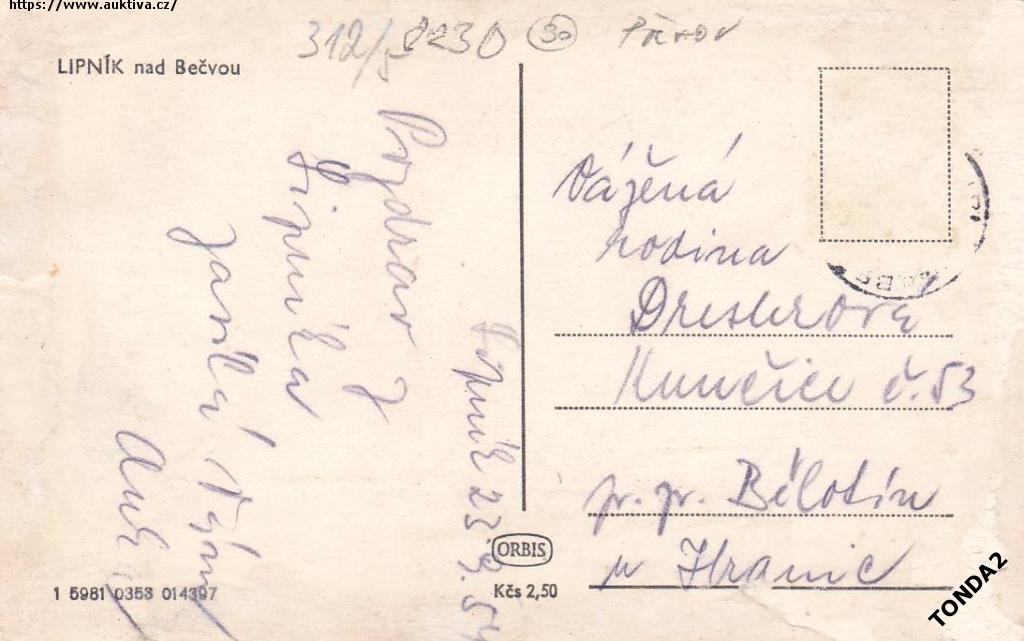 https://www.auktiva.cz/
312/5 8230 30
LIPNÍK nad Bečvou
Pozdrav z
Lipníka
Lipník 23.9.54
Vážená
rodina
Dreslerova
Kunčice č. 53
p. p. Bělotín
u Hranic
ORBIS
Kčs 2,50
1 5981 0358 014397
TONDA2